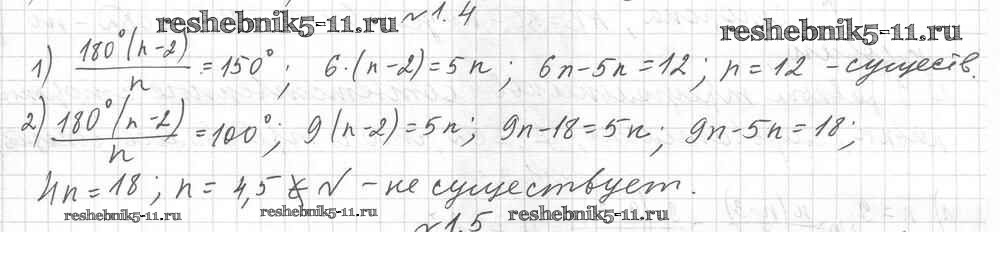 reshebnik5-11.ru №1.4
reshebnik5-11.ru
1) 180°(n-2)/n = 150°; 6·(n-2)=5n; 6n-5n=12; n=12 - существ.
2) 180°(n-2)/n = 100°; 9(n-2)=5n; 9n-18=5n; 9n-5n=18;
4n=18; n=4,5 ∉ N - не существует.
reshebnik5-11.ru reshebnik5-11.ru reshebnik5-11.ru
№1.5